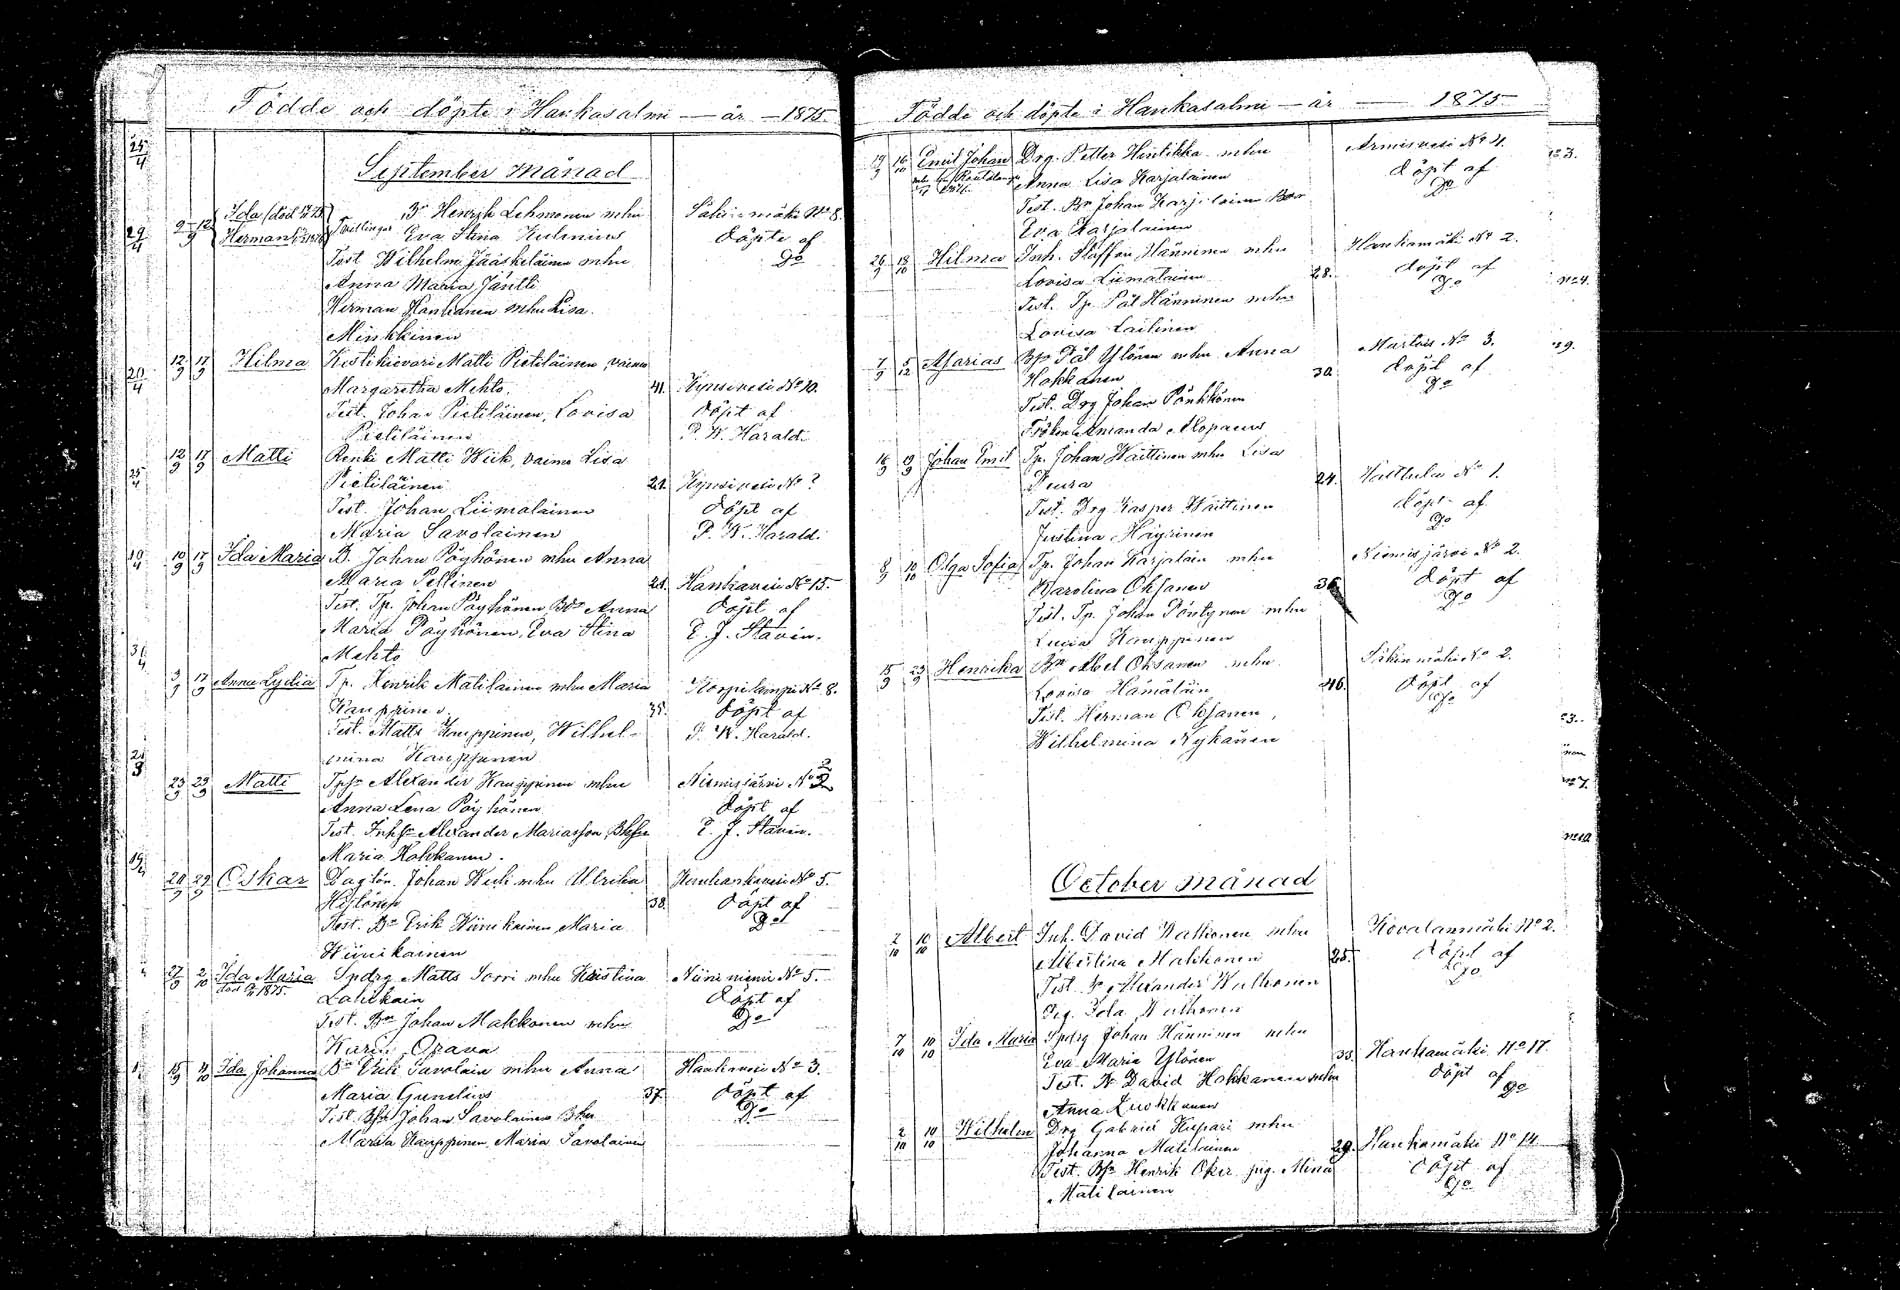 Födde och döpte i Hankasalmi — år — 1875.
September månad
Ida (död
Herman
Tvillingar
Henrik Lehmonen mhu
Eva Stina Kulmin
döpte af
Do
Test Wilhelm Jääskeläinen mhu
Anna Maria Jäntti
Herman Hankanen mhu Lisa
Minkkinen
12/9 17/9 Hilma Kestikievari Matti Pietiläinen, vaimo
Margaretha Mehto. 41. Kynsivesi No 10.
Test. Johan Pietiläinen, Lovisa döpt af
Pietiläinen P. W. Harald.
12/9 17/9 Matti Renki Matti Wiik, vaimo Lisa
Pietiläinen Kynsivesi No ?
Test. Johan Liimatainen döpt af
Maria Savolainen P. W. Harald.
10/9 17/9 Ida Maria B. Johan Pöyhönen mhu Anna
Maria Pellinen Hankavesi No 15.
Test. Tp. Johan Pöyhönen Anna döpt af
Maria Pöyhönen, Eva Stina E. J. Stavén.
Mehto
3/9 17/9 Anna Lydia Tp. Henrik Matilainen mhu Maria Korpilampi No 8.
Kauppinen. 35. döpt af
Test. Matts Kauppinen, Wilhel- P. W. Harald.
mina Kauppinen
23/9 29/9 Matti Alexander Kauppinen mhu Niemisjärvi No 2
Anna Lena Pöyhönen döpt af
Test. Alexander Mariasson E. J. Stavén.
Maria Hokkanen.
20/9 29/9 Oskar Daglön. Johan Wiik mhu Ulrika Hankavesi No 5.
38. döpt af
Test. Bn Erik Wiinikainen, Maria Do
Wiinikainen
27/9 2/10 Ida Maria Spdrg Matts Sorri mhu Kristina Niinimäki No 5.
1875. döpt af
Test. Bn Johan Makkonen mhu Do
Karin Orava
15/9 4/10 Ida Johanna Bn Erik Savolain mhu Anna Hankavesi No 3.
Maria Gunelius 37. döpt af
Test. Johan Savolainen Do
Maria Kauppinen, Maria Savolainen
Födde och döpte i Hankasalmi — år — 1875
19/9 16/10 Emil Johan Drg. Petter Hintikka mhu Armisvesi No 4.
Anna Lisa Karjalainen döpt af
Test. Bn Johan Karjalainen Do
Eva Karjalainen
26/9 18/10 Hilma Inh. Staffan Hänninen mhu Hankamäki No 2.
Lovisa Liimatainen 28. döpt af
Test. Tp. Pål Hänninen mhu Do
Lovisa Laitinen
7/9 5/12 Asarias Pål Ylönen mhu Anna No 3.
Hokkanen 30. döpt af
Test. Drg Johan Pönkkönen Do
Fröken Amanda Alopaeus
16/9 19/9 Johan Emil Tp. Johan Waittinen mhu Lisa
Peura 24. No 1.
Test. Drg Kasper Waittinen döpt af
Justina Häyrinen Do
8/9 10/10 Olga Sofia Tp. Johan Karjalain mhu Niemisjärvi No 2.
Karolina Oksanen 36. döpt af
Test. Tp. Johan Pöntynen mhu Do
Lucia Kauppinen
15/9 23/9 Henrika Bn Abel Oksanen mhu Säkinmäki No 2.
Lovisa Hämäläin 46. döpt af
Test. Herman Oksanen, Do
Wilhelmina Nykänen
October månad
2/10 10/10 Albert Inh. David Watkonen mhu Kovalanmäki No 2.
Albertina Makkonen 25. döpt af
Test. Alexander Do
Pig. Ida
7/10 10/10 Ida Maria Spdrg Johan Hänninen mhu
Eva Maria Ylönen 33. Hankamäki No 17.
Test. Bn David Hokkanen mhu döpt af
Anna Do
2/10 10/10 Wilhelm Drg Gabriel Kupari mhu
Johanna Matilainen 29. Hankamäki No 14.
Test. Henrik Oker pig. Mina döpt af
Matilainen Do